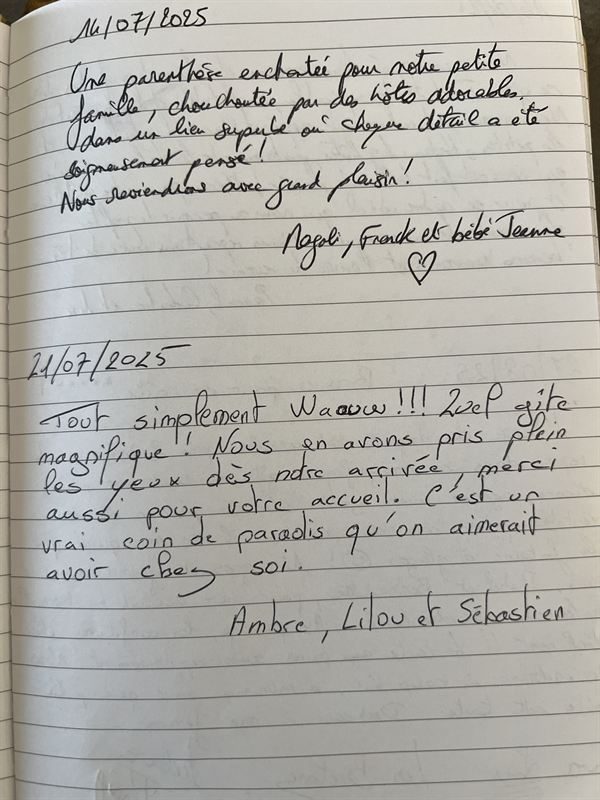 14/07/2025
Une parenthèse enchantée pour notre petite
famille, chouchoutée par des hôtes adorables,
dans un lieu superbe où chaque détail a été
soigneusement pensé !
Nous reviendrons avec grand plaisir !
Magali, Franck et bébé Jeanne
♡
21/07/2025
Tout simplement Waouw !!! Quel gîte
magnifique ! Nous en avons pris plein
les yeux dès notre arrivée, merci
aussi pour votre accueil. C'est un
vrai coin de paradis qu'on aimerait
avoir chez soi.
Ambre, Lilou et Sébastien